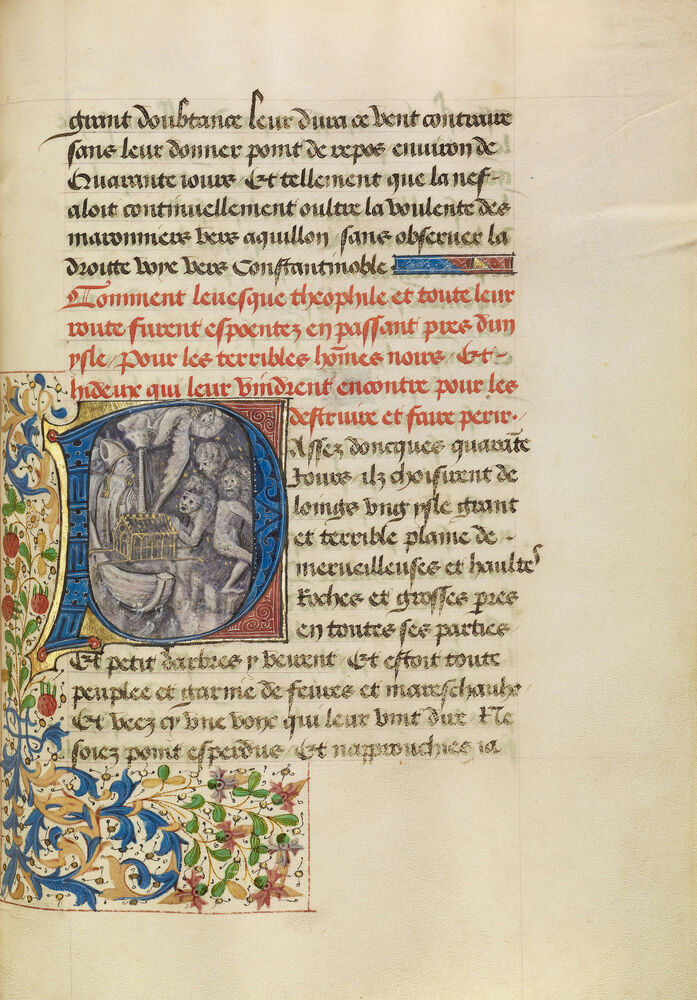 grant doubtance leur dura ce vent contraire
sans leur donner point de repos environ de
Quarante iours Et tellement que la nef-
aloit continuellement oultre la voulente des
maronniers vers aquillon sans obseruer la
droitte voye vers Constantinoble.
Comment leuesque theophile et toute leur
route furent espoentez en passant pres dun
ysle/ Pour les terribles hōmes noirs/ Et-
hideux qui leur vindrent encontre pour les
destruire et faire perir.
D Assez doncques quarāte
Iours/ ilz choisirent de
loings vng ysle grant
et terrible plaine de -
merueilleuses et haultes
Roches et grosses pres
en toutes ses parties
Et petit darbres y veirent/ Et estoit toute
peuplee et garnie de feures et mareschaulx
Et veez cy vne voix qui leur vint dire/ Ne
soiez point esperdus/ Et napprouchies ia